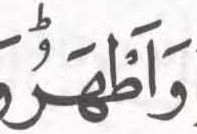 وَاَطْهَرُؕ